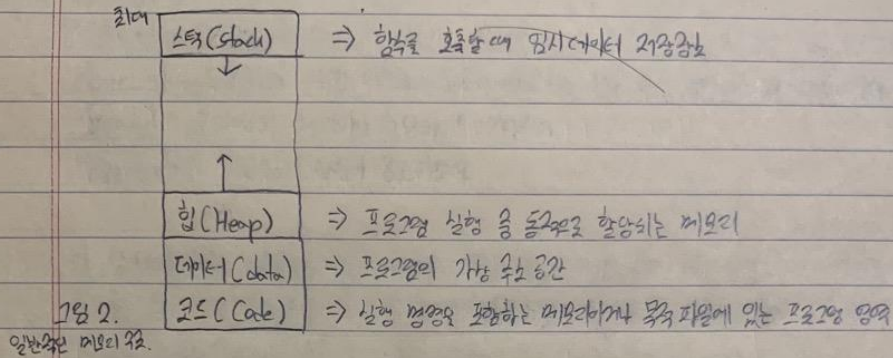 최대
스택(Stack) ⇒ 함수를 호출할 때 임시 데이터 저장장소
힙(Heap) ⇒ 프로그램 실행 중 동적으로 할당되는 메모리
데이터(data) ⇒ 프로그램의 가상 주소 공간
그림 2. 코드(Code) ⇒ 실행 명령을 포함하는 메모리이거나 목적 파일에 있는 프로그램 영역
일반적인 메모리 구조.